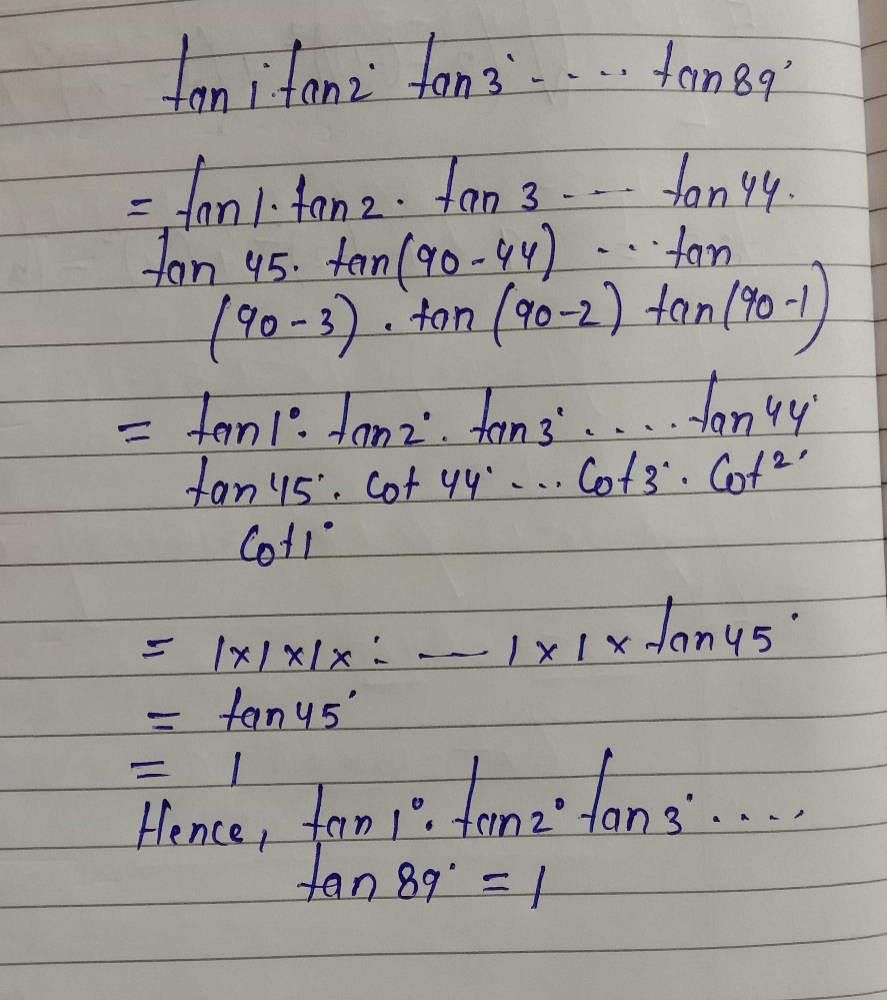 tan 1° · tan 2° tan 3° - - - - tan 89°
= tan 1 · tan 2 · tan 3 - - - tan 44 ·
tan 45 · tan (90 - 44) - - - tan
(90 - 3) · tan (90 - 2) tan (90 - 1)
= tan 1° · tan 2° · tan 3° . . . . . tan 44°
tan 45° · Cot 44° ... Cot 3° · Cot 2°
Cot 1°
= 1 x 1 x 1 x - - - 1 x 1 x tan 45°
= tan 45°
= 1
Hence, tan 1° · tan 2° tan 3° . . . .
tan 89° = 1